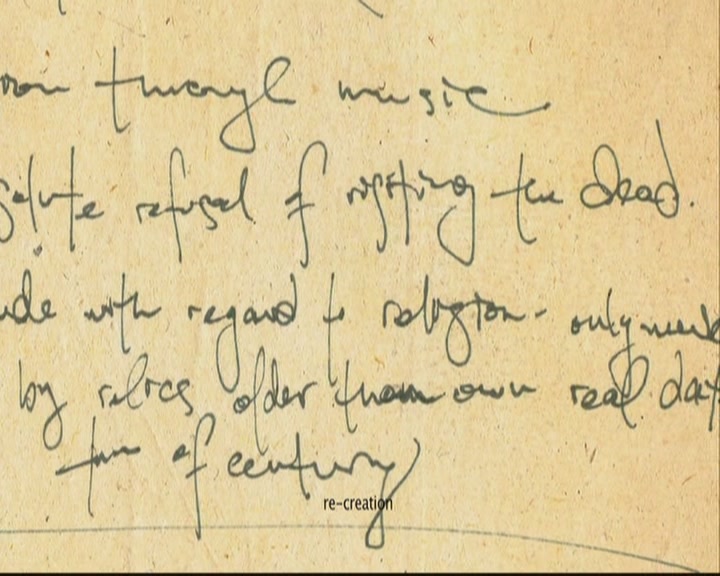 through music
refusal of visiting the dead.
with regard to religion - only
by relics older than own real days
turn of century
re-creation